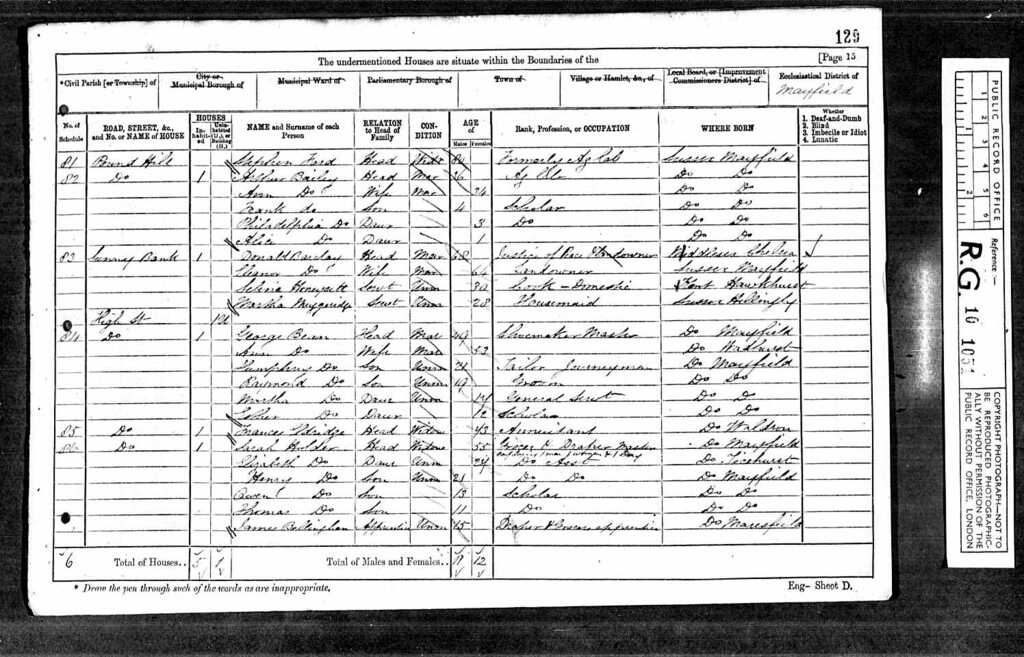 129
The undermentioned Houses are situate within the Boundaries of the
[Page 15
*Civil Parish [or Township] of
City or Municipal Borough of
Municipal Ward of
Parliamentary Borough of
Town of
Village or Hamlet, &c., of
Local Board, or [Improvement Commissioners District] of
Ecclesiastical District of
Mayfield
No. of Schedule
ROAD, STREET, &c., and No. or NAME of HOUSE
HOUSES
Inhabited
Uninhabited (U.), or Building (B.)
NAME and Surname of each Person
RELATION to Head of Family
CONDITION
AGE of
Males
Females
Rank, Profession, or OCCUPATION
WHERE BORN
Whether
1. Deaf-and-Dumb
2. Blind
3. Imbecile or Idiot
4. Lunatic
81 Stephen Ford Head Formerly Ag Lab Sussex Mayfield
82 Do 1 Arthur Bailey Head Mar Do Do
Ann Do Wife Mar 24 Do Do
Frank do Son 4 Scholar Do Do
Philadelphia Do Daur 3 Do Do Do
Alice Do Daur 1 Do Do
83 Sunny Bank 1 Donald Barclay Head Mar 68 Justice of Landowner Middlesex Chelsea
Eleanor Do Wife Mar 64 Landowner Sussex Mayfield
Honeysett Servt Unm 30 Cook - Domestic Kent Hawkhurst
Martha Servt Unm 28 Housemaid Sussex Hellingly
High St
84 Do 1 George Bean Head Mar 49 Shoemaker Master Do Mayfield
Ann Do Wife Mar 52 Do Wadhurst
Humphrey Do Son Unm 21 Tailor Journeyman Do Mayfield
Raymond Do Son Unm 19 Groom Do Do
Martha Do Daur Unm 14 General Servt Do Do
Esther Do Daur 12 Scholar Do Do
85 Do 1 Frances Head Widow 43 Annuitant Do Waldron
86 Do 1 Sarah Head Widow 55 Grocer & Draper Master Do Mayfield
Elizabeth Do Daur Unm 24 Do Asst Do Ticehurst
Henry Do Son Unm 21 Do Do Do Mayfield
Owen Do Son 13 Scholar Do Do
Thomas Do Son 11 Do Do Do
James Apprentice Unm 15 Draper & Grocers apprentice Do Maresfield
6 Total of Houses.. 5 1 Total of Males and Females.. 11 12
* Draw the pen through such of the words as are inappropriate.
Eng- Sheet D.
PUBLIC RECORD OFFICE
1 2 3 4 5 6
1 2
Reference:-
R.G. 10 1051
COPYRIGHT PHOTOGRAPH-NOT TO BE REPRODUCED PHOTOGRAPHICALLY WITHOUT PERMISSION OF THE PUBLIC RECORD OFFICE, LONDON